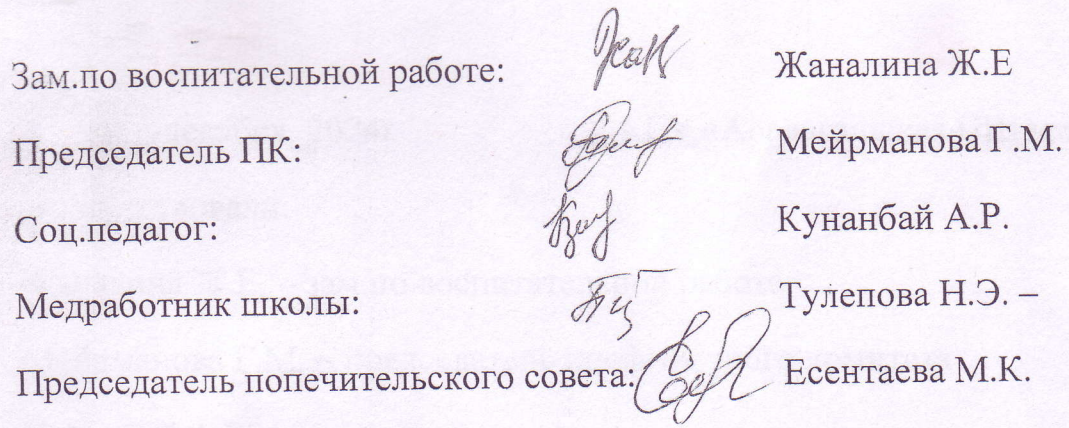 Зам.по воспитательной работе: Жаналина Ж.Е
Председатель ПК: Мейрманова Г.М.
Соц.педагог: Кунанбай А.Р.
Медработник школы: Тулепова Н.Э. –
Председатель попечительского совета: Есентаева М.К.